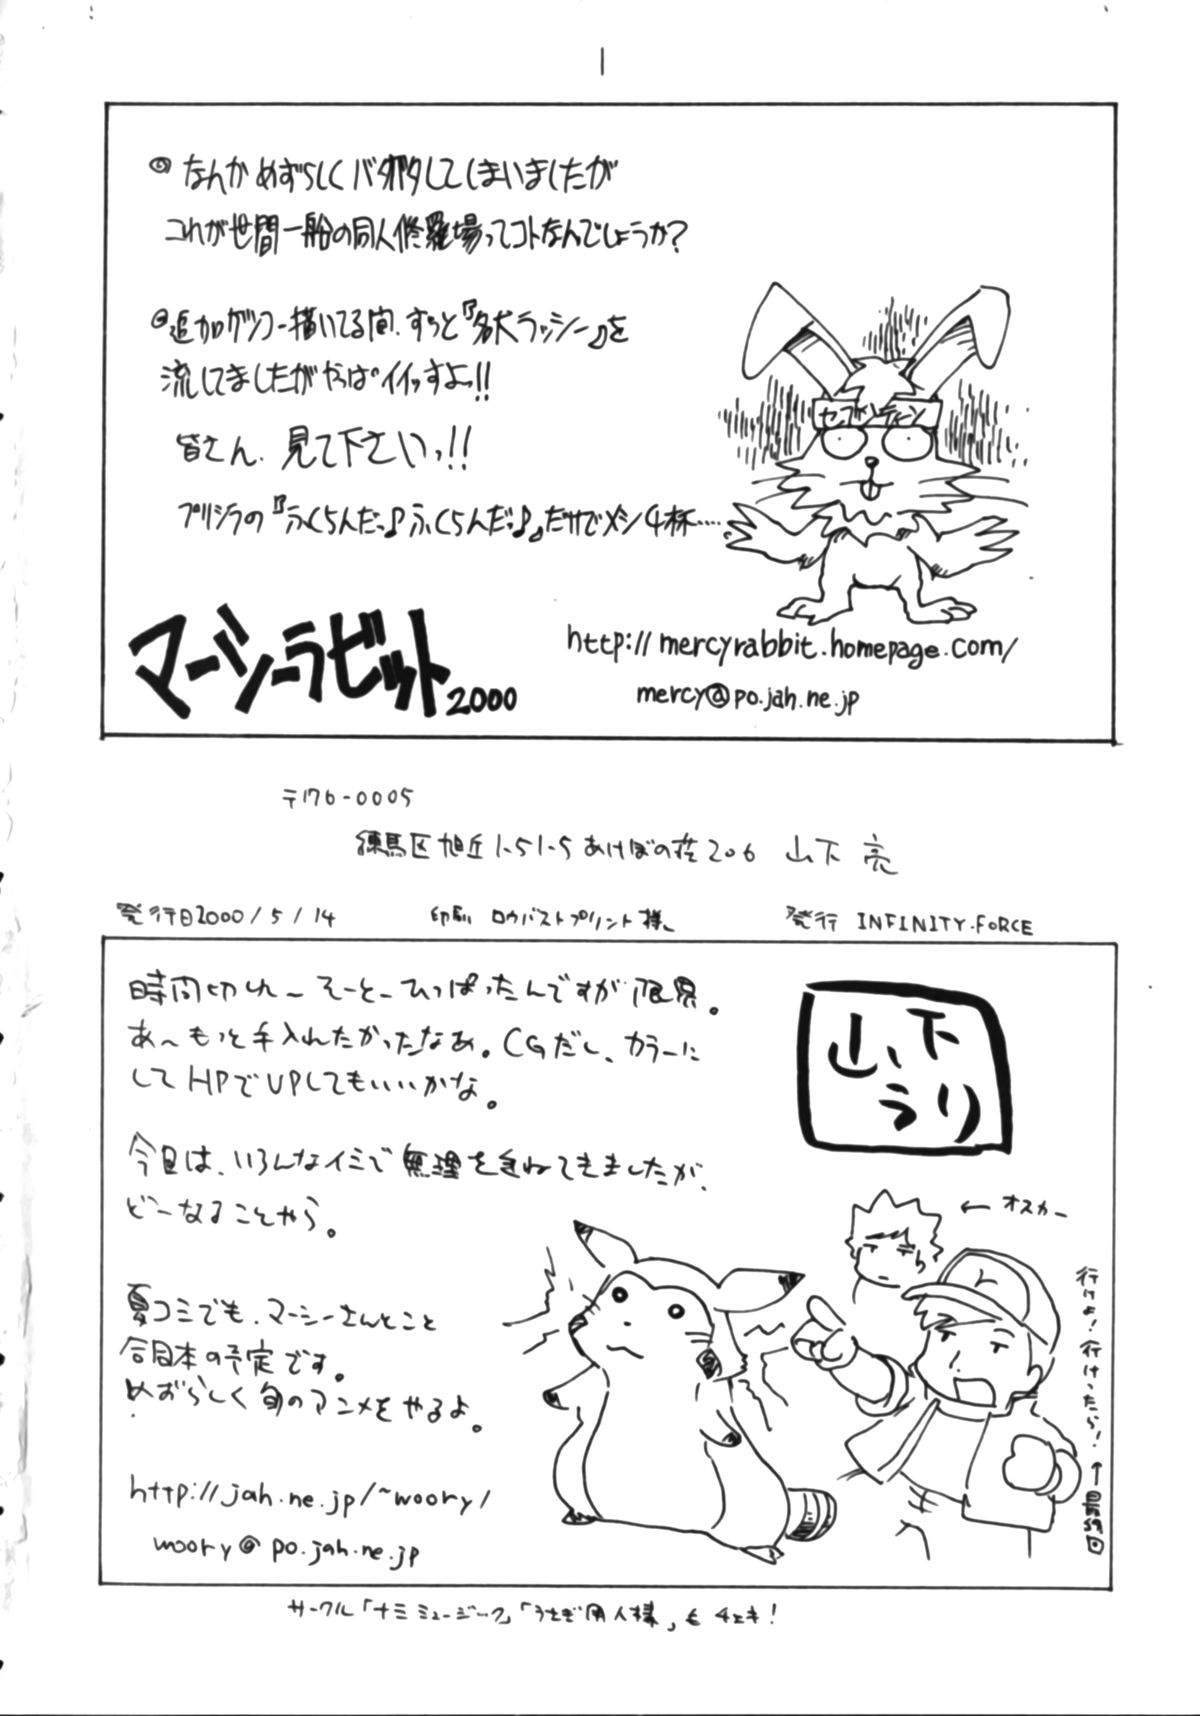 1
◎なんかめずらしくバタバタしてしまいましたが
これが世間一船の同人修羅場ってコトなんでしょうか?
◎追加ゲンコー描いてる間、ずっと『名犬ラッシー』を
流してましたがやっぱイイっすよっ!!
皆さん、見て下さいっ!!
プリシラの『ふくらんだっ♪ふくらんだっ♪』だけでメシ4杯……
セブンティーン
マーシーラビット2000
http://mercyrabbit.homepage.com/
mercy@po.jah.ne.jp
〒176-0005
練馬区旭丘1-51-5あけぼの荘206 山下 亮
発行日2000/5/14 印刷 ロウバストプリント様 発行 INFINITY.FORCE
時間切れ〜そーとーひっぱったんですが限界。
あ〜もっと手入れたかったなあ。CGだし、カラーに
してHPでUPしてもいいかな。
今回は、いろんなイミで無理を重ねてきましたが、
どーなることやら。
夏コミでも、マーシーさんとこと
合同本の予定です。
めずらしく旬のアニメをやるよ。
http://jah.ne.jp/~woory/
woory@po.jah.ne.jp
山下
うり
←オスカー
行けよ!行けったら!→最終回
サークル「ナミミュージック」「うさぎ用人様」もチェキ!